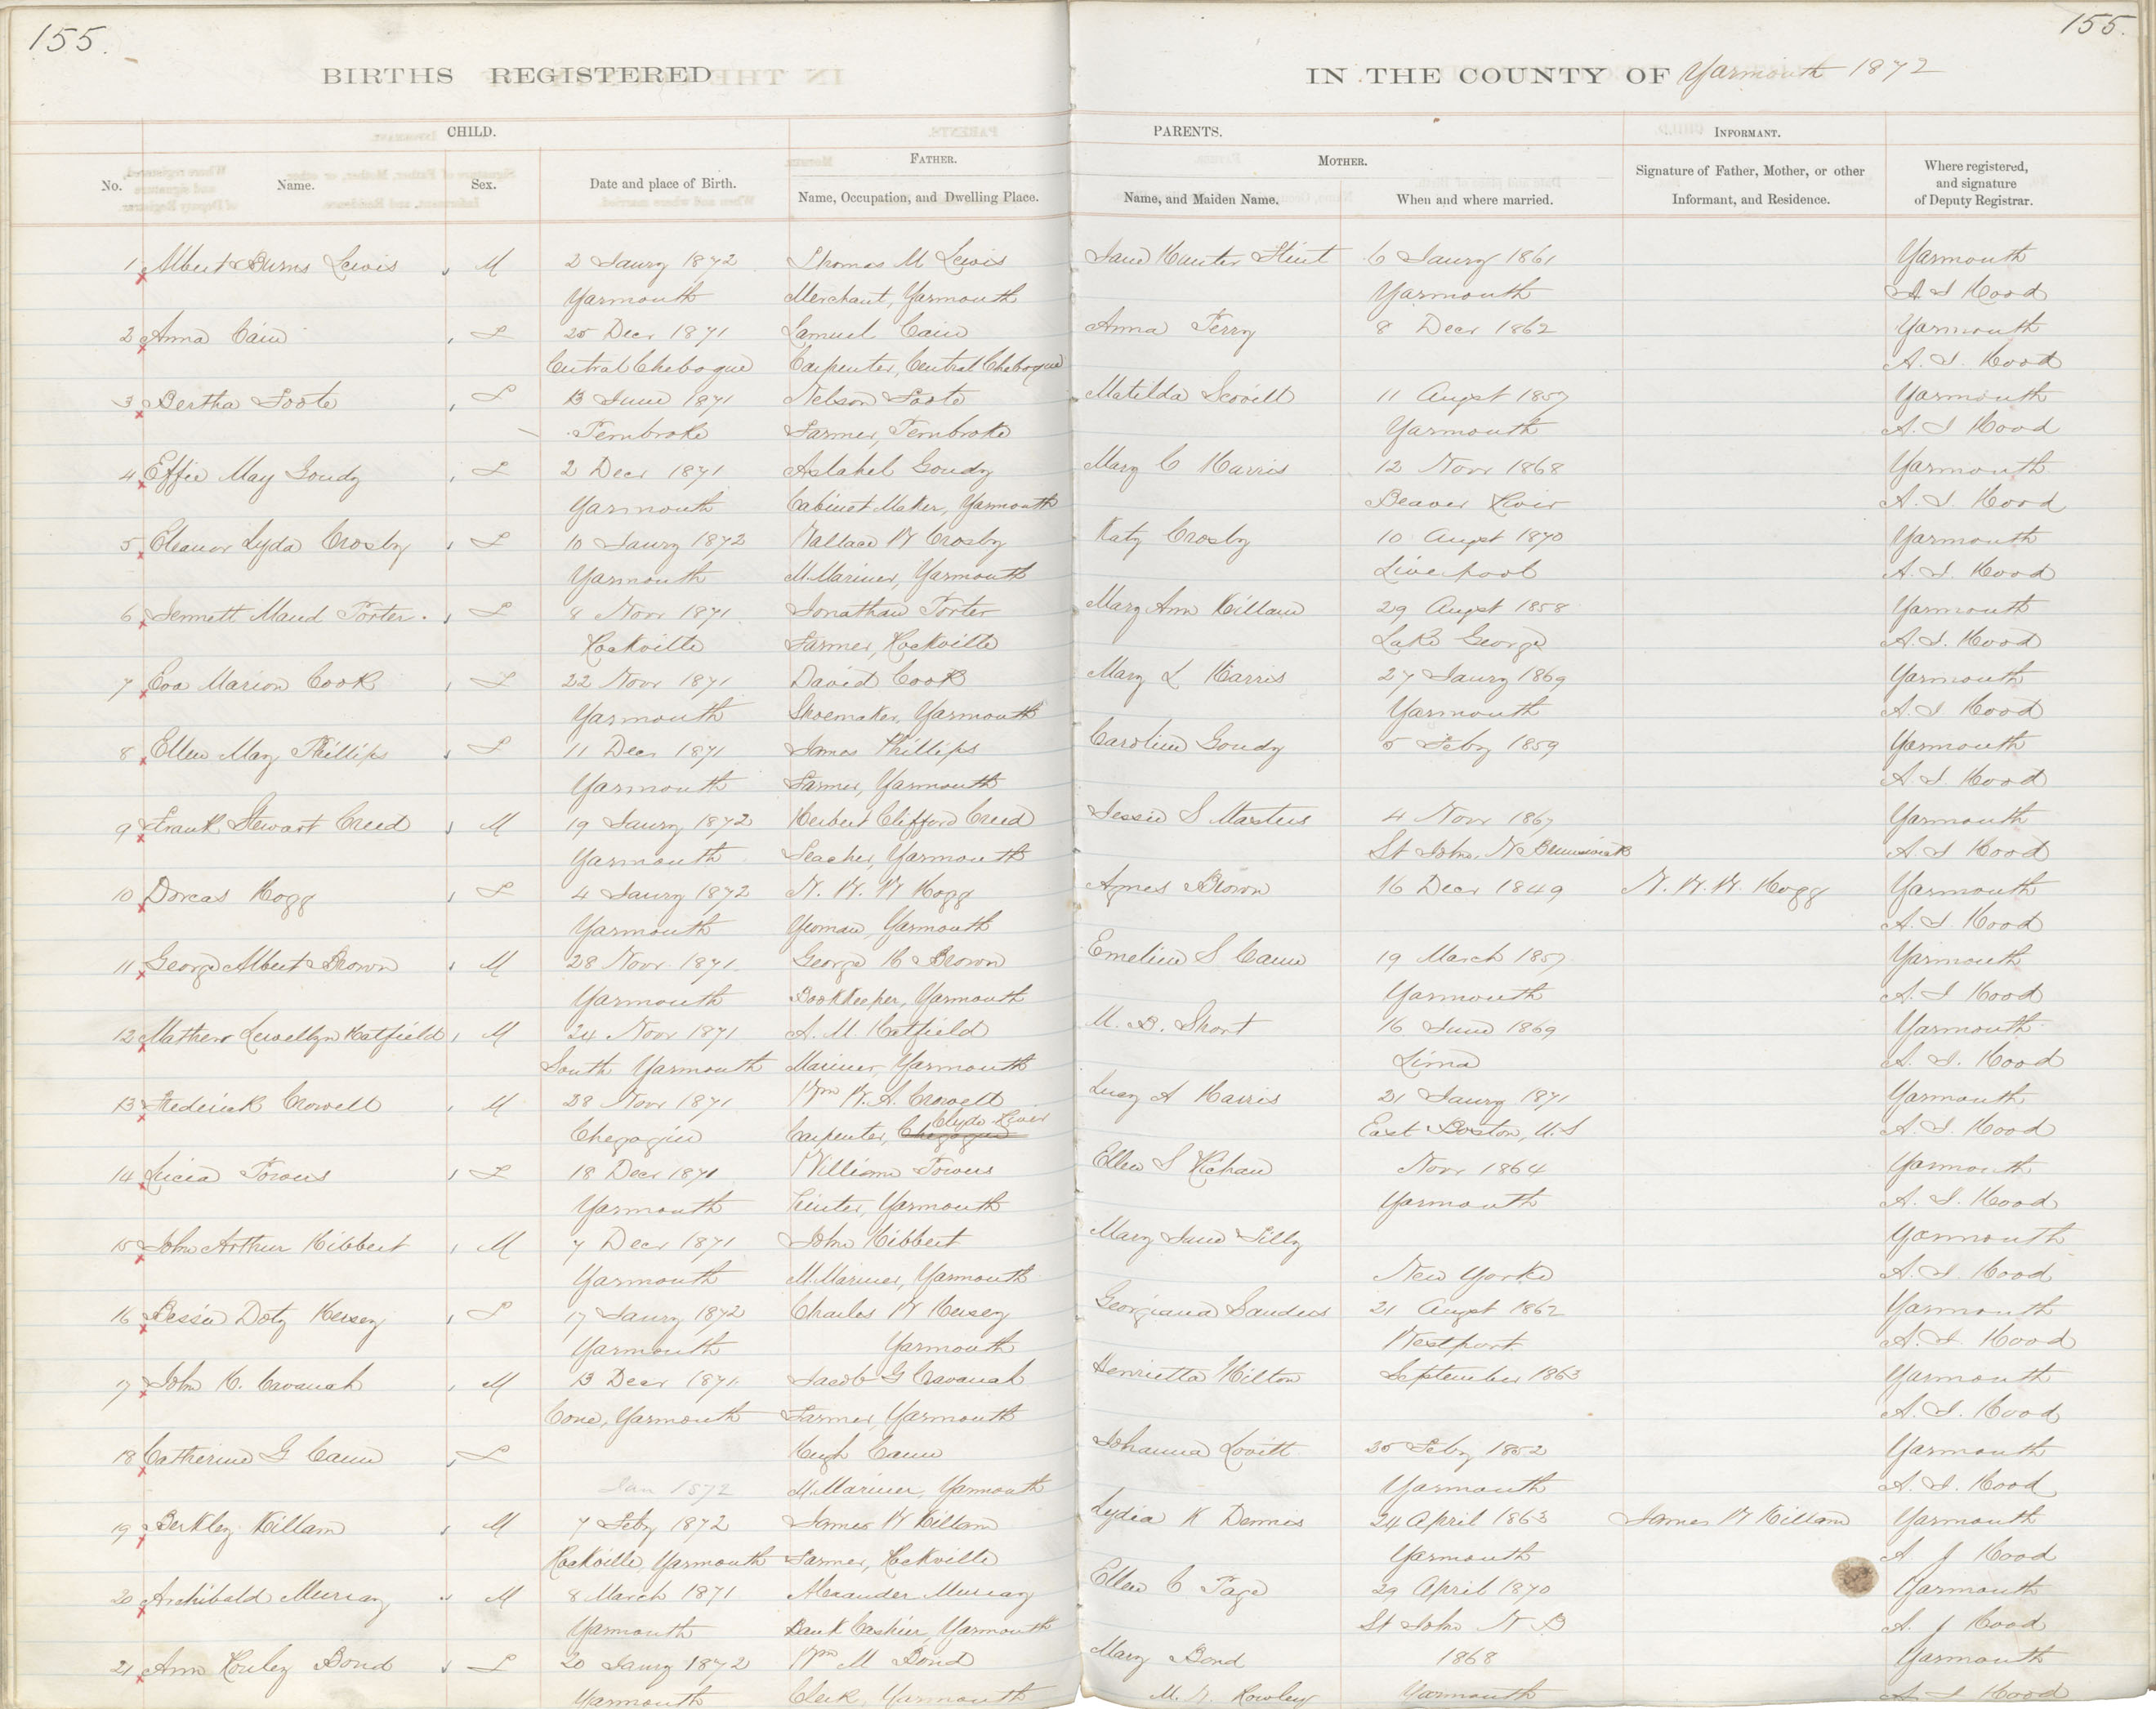 155.
155.
BIRTHS REGISTERED
IN THE COUNTY OF Yarmouth 1872
CHILD.
PARENTS.
INFORMANT.
FATHER.
MOTHER.
No.
Name.
Sex.
Date and place of Birth.
Name, Occupation, and Dwelling Place.
Name, and Maiden Name.
When and where married.
Signature of Father, Mother, or other
Informant, and Residence.
Where registered,
and signature
of Deputy Registrar.
1 Albert Burns Lewis M 2 Jany 1872 Thomas M Lewis Jane Hunter Flint 6 Jany 1861 Yarmouth
Yarmouth Merchant, Yarmouth Yarmouth A J Hood
2 Anna Cain F 25 Decr 1871 Samuel Cain Anna Perry 8 Decr 1862 Yarmouth
Central Chebogue Carpenter, Central Chebogue A. J. Hood
3 Bertha Foote F 13 June 1871 Nelson Foote Matilda Scovill 11 Augst 1857 Yarmouth
Pembroke Farmer, Pembroke Yarmouth A. J Hood
4 Effie May Goudy F 2 Decr 1871 Asahel Goudy Mary C Harris 12 Novr 1868 Yarmouth
Yarmouth Cabinet Maker, Yarmouth Beaver River A. J. Hood
5 Eleanor Lyda Crosby F 10 Jany 1872 Wallace W Crosby Katy Crosby 10 Augst 1870 Yarmouth
Yarmouth M. Mariner, Yarmouth Liverpool A. J. Hood
6 Jennett Maud Porter. F 8 Novr 1871 Jonathan Porter Mary Ann Killam 29 Augst 1858 Yarmouth
Rockville Farmer, Rockville Lake George A. J. Hood
7 Eva Marion Cook F 22 Novr 1871 David Cook Mary L Harris 27 Jany 1869 Yarmouth
Yarmouth Shoemaker, Yarmouth Yarmouth A. J Hood
8 Ellen May Phillips F 11 Decr 1871 James Phillips Caroline Goudy 5 Feby 1859 Yarmouth
Yarmouth Farmer, Yarmouth A. J Hood
9 Frank Stewart Creed M 19 Jany 1872 Herbert Clifford Creed Jessie S Masters 4 Novr 1867 Yarmouth
Yarmouth Teacher, Yarmouth St John, N Brunswick A J Hood
10 Dorcas Hogg F 4 Jany 1872 N. W. W Hogg Agnes Brown 16 Decr 1849 N. W. W. Hogg Yarmouth
Yarmouth Yeoman, Yarmouth A. J. Hood
11 George Albert Brown M 28 Novr 1871 George H Brown Emeline S Cann 19 March 1857 Yarmouth
Yarmouth Bookkeeper, Yarmouth Yarmouth A. J Hood
12 Mathew Lewellyn Hatfield M 24 Novr 1871 A. M Hatfield M. B. Short 16 June 1869 Yarmouth
South Yarmouth Mariner, Yarmouth Lima A. J. Hood
13 Frederick Crowell M 28 Novr 1871 Wm W. A. Crowell Lucy A Harris 21 Jany 1871 Yarmouth
Chegogin Carpenter, Chegogin Clyde River East Boston, U. S A. J. Hood
14 Licia Powers F 18 Decr 1871 William Powers Ellen S Novr 1864 Yarmouth
Yarmouth Yarmouth Yarmouth A. J. Hood
15 John Arthur Hibbert M 7 Decr 1871 John Hibbert Mary Jane Tilly Yarmouth
Yarmouth M. Mariner, Yarmouth New York A. J. Hood
16 Bessie Doty Hersey F 17 Jany 1872 Charles W Hersey Georgiana Sanders 21 Augst 1862 Yarmouth
Yarmouth Yarmouth Westport A. J. Hood
17 John H. Cavanah M 13 Decr 1871 Jacob G Cavanah Henrietta Hilton September 1863 Yarmouth
Cove, Yarmouth Farmer, Yarmouth A. J. Hood
18 Catherine G Cann F Hugh Cann Johanna Lovitt 25 Feby 1852 Yarmouth
Jan 1872 M. Mariner, Yarmouth Yarmouth A. J. Hood
19 Berkley Killam M 7 Feby 1872 James W Killam Lydia K Dennis 24 April 1863 James W Killam Yarmouth
Rockville, Yarmouth Farmer, Rockville Yarmouth A J Hood
20 Archibald Murray M 8 March 1871 Alexander Murray Ellen C Page 29 April 1870 Yarmouth
Yarmouth Bank Cashier, Yarmouth St John N B A. J Hood
21 Ann Bond F 20 Jany 1872 Wm M Bond Mary Bond 1868 Yarmouth
Yarmouth Clerk, Yarmouth M. N. Rowley Yarmouth A. J Hood